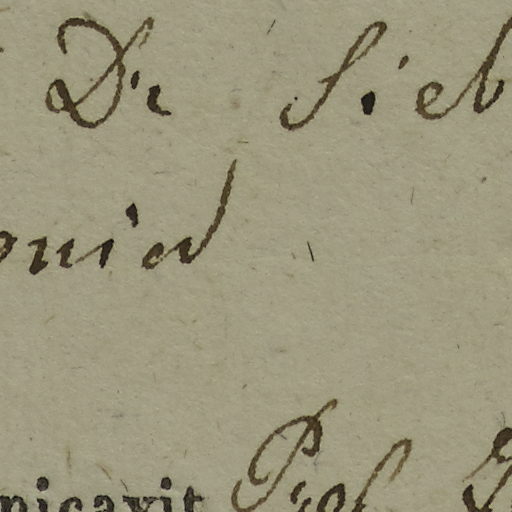 Dr Sieb
onied
nicavit Prof